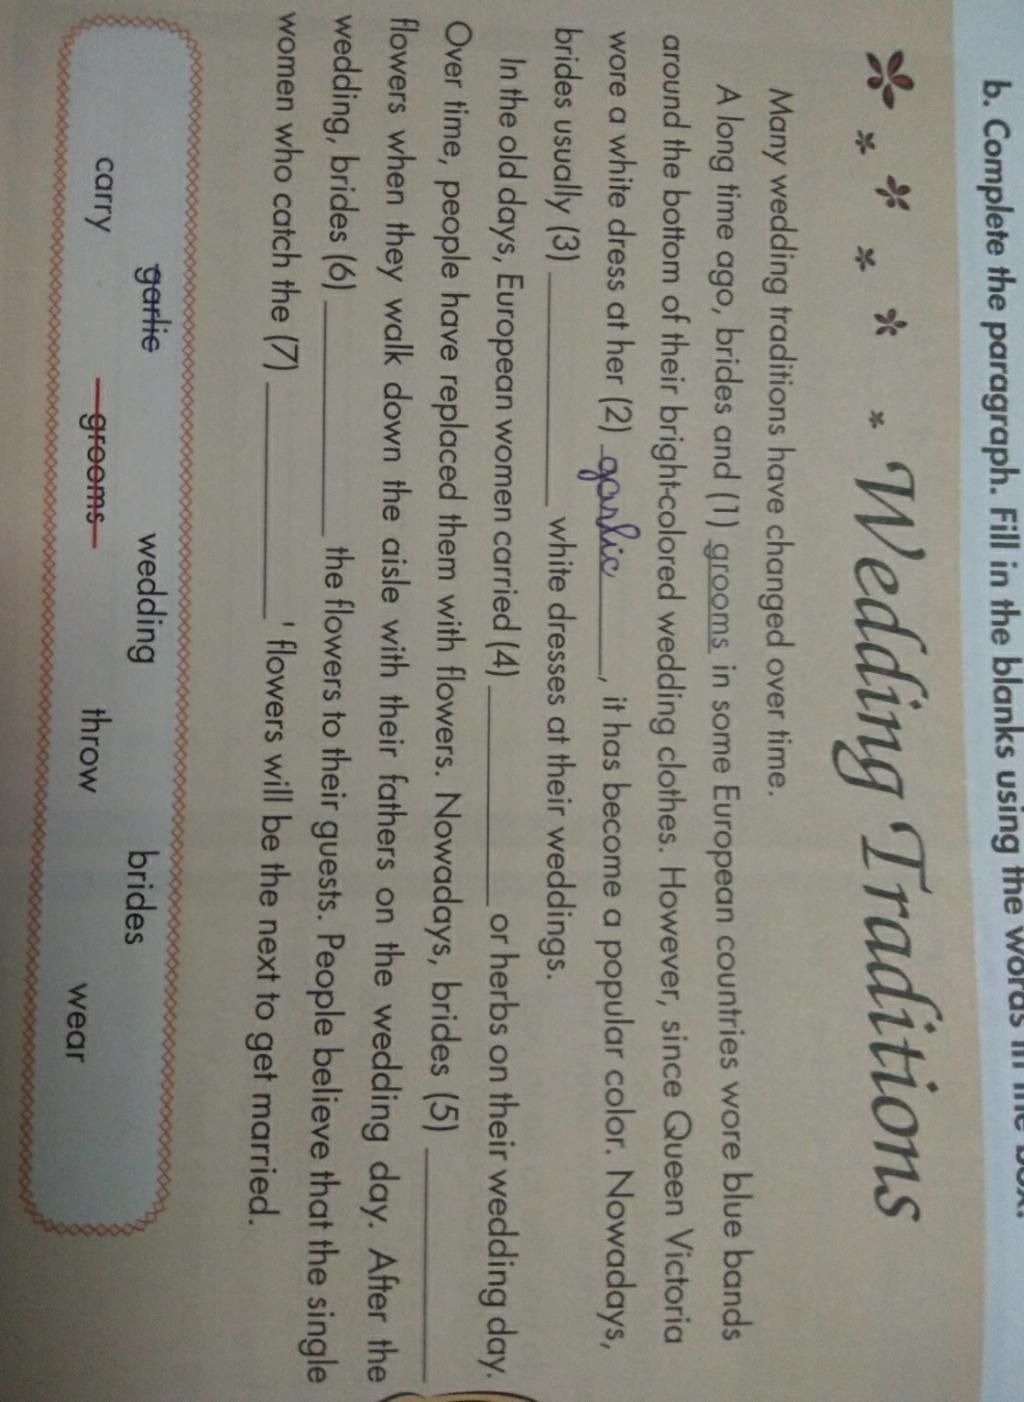 b. Complete the paragraph. Fill in the blanks using the words in the box.
Wedding Traditions
Many wedding traditions have changed over time.
A long time ago, brides and (1) grooms in some European countries wore blue bands
around the bottom of their bright-colored wedding clothes. However, since Queen Victoria
wore a white dress at her (2) garlic, it has become a popular color. Nowadays,
brides usually (3) white dresses at their weddings.
In the old days, European women carried (4) or herbs on their wedding day.
Over time, people have replaced them with flowers. Nowadays, brides (5)
flowers when they walk down the aisle with their fathers on the wedding day. After the
wedding, brides (6) the flowers to their guests. People believe that the single
women who catch the (7) ' flowers will be the next to get married.
garlic wedding brides
carry grooms throw wear